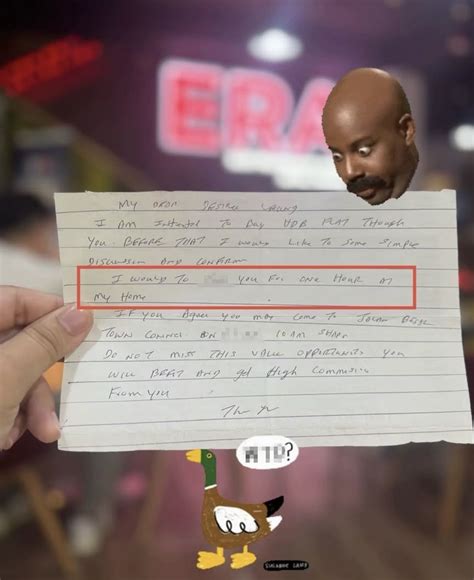 ERA
My DEAR DESIREE
I Am Intrested To Buy HDB FLAT Though
You. BEFORE THAT I would Like To Some Simple
Discussion And Confirm
I would To you For one Hour at
My Home
IF you Agree you may come To Jalan
Town Council ON 10 AM SHARP
Do NOT MISS THIS VALUE OPPORTUNITY you
will and get High Commission
From you
?